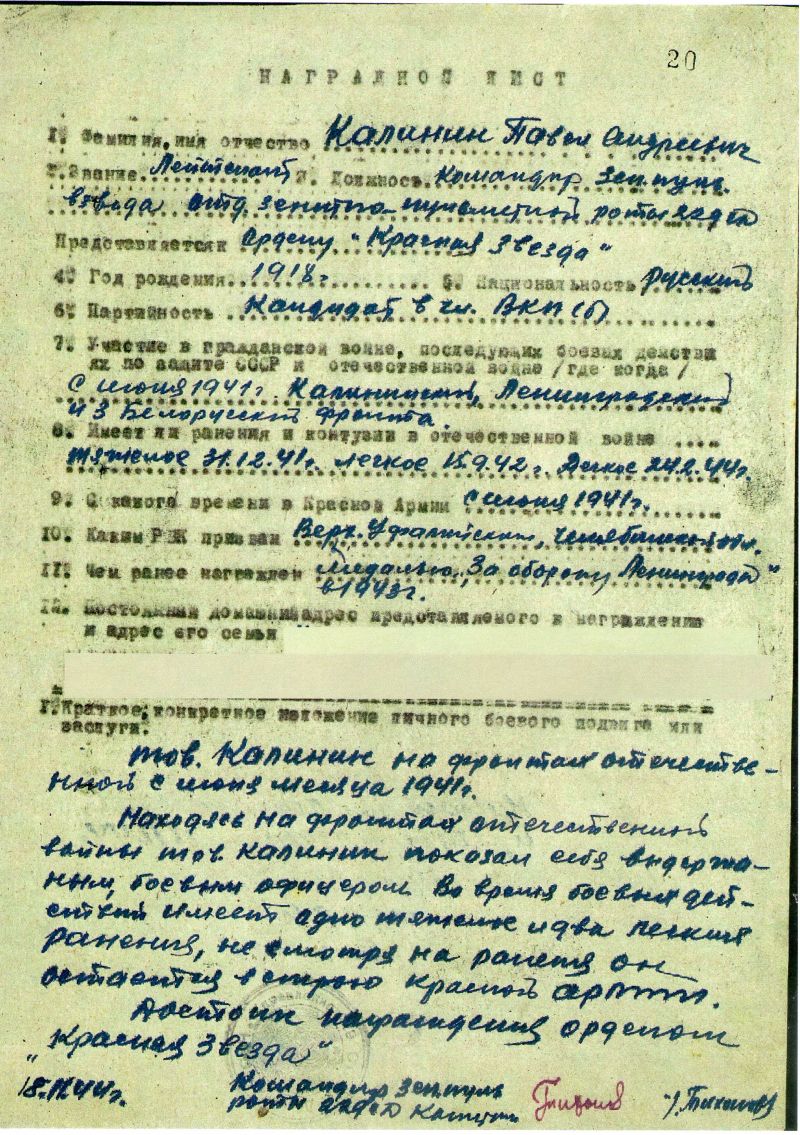 20
НАГРАДНОЙ ЛИСТ
1. Фамилия, имя отчество Калинин Павел Андреевич
2. Звание Лейтенант 3. Должность командир зен.пул.
взвода отд зенитно-пулеметной роты
Представляется к ордену "Красная Звезда"
4. Год рождения 1918 5. Национальность русский
6. Партийность Кандидат в чл. ВКП(б)
7. Участие в гражданской войне, последующих боевых действи
ях по защите СССР и отечественной войне /где когда/
С июня 1941 г. Калининский, Ленинградский
и 3 Белорусский фронта.
8. Имеет ли ранения и контузии в отечественной войне
тяжелое 31.12.41г. легкое 15.9.42г. легкое 24.2.44г.
9. С какого времени в Красной Армии с июня 1941г.
10. Каким РВК призван Верх. Уфалейским, Челябинской обл.
11. Чем ранее награжден Медалью "За оборону Ленинграда"
в 1943г.
12. Постоянный домашний адрес представляемого к награждению
и адрес его семьи
1. Краткое, конкретное изложение личного боевого подвига или
заслуги.
тов. Калинин на фронтах отечестве-
нной с июня месяца 1941г.
Находясь на фронтах отечественной
войны тов Калинин показал себя выдержа-
ным, боевым офицером. Во время боевых дей-
ствий имеет одно тяжелое и два легких
ранения, не смотря на ранения он
остается в строю красной армии.
Достоин награждения орденом
"Красная Звезда"
Командир зенпуль
роты Капитан